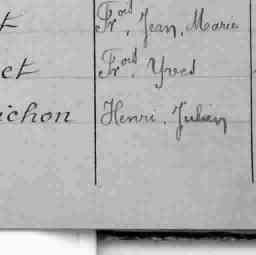 t Fr^ois, Jean, Marie
et Fr^ois, Yves
ichon Henri, Julien